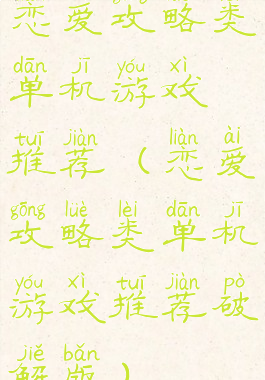 恋爱攻略类
dān jī yóu xì
单机游戏
tuī jiàn liàn ài
推荐（恋爱
gōng lüè lèi dān jī
攻略类单机
yóu xì tuī jiàn pò
游戏推荐破
jiě bǎn
解版）